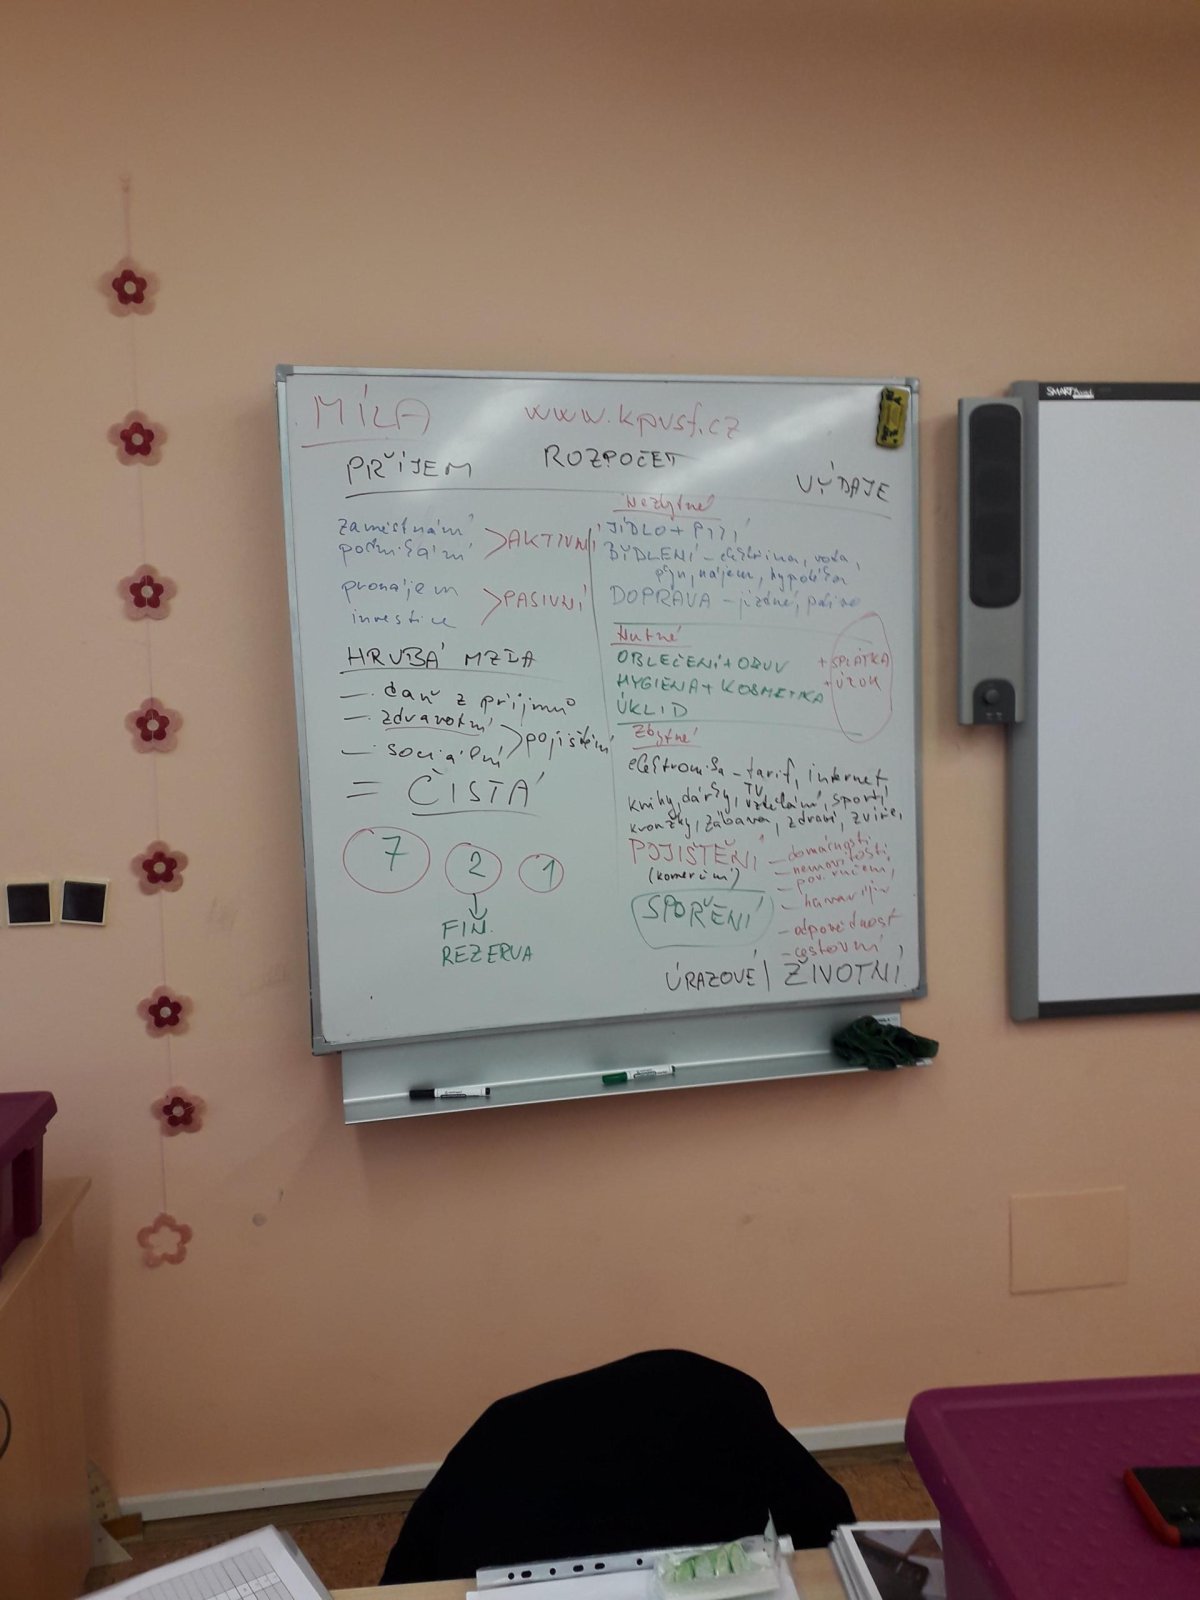 MÍLA
www.kpvsf.cz
ROZPOČET
PŘÍJEM
VÝDAJE
zaměstnání
podnikání
> AKTIVNÍ
pronájem
investice
> PASIVNÍ
HRUBÁ MZDA
— daň z příjmů
— zdravotní
— sociální
> pojištění
= ČISTÁ
7
2
1
FIN.
REZERVA
Nezbytné
JÍDLO + PITÍ
BYDLENÍ – elektřina, voda,
plyn, nájem, hypotéka
DOPRAVA – jízdné,
Nutné
OBLEČENÍ + OBUV
HYGIENA + KOSMETIKA
ÚKLID
+ SPLÁTKA
+ ÚROK
Zbytné
elektronika – tarif, internet
TV
knihy, dárky, vzdělání, sport,
kroužky, zábava, zdraví, zvíře,
POJIŠTĚNÍ
(komerční)
– domácnosti
– nemovitosti
– pov. ručení
– havarijní
– odpovědnost
– cestovní
SPOŘENÍ
ÚRAZOVÉ | ŽIVOTNÍ
SMART Board